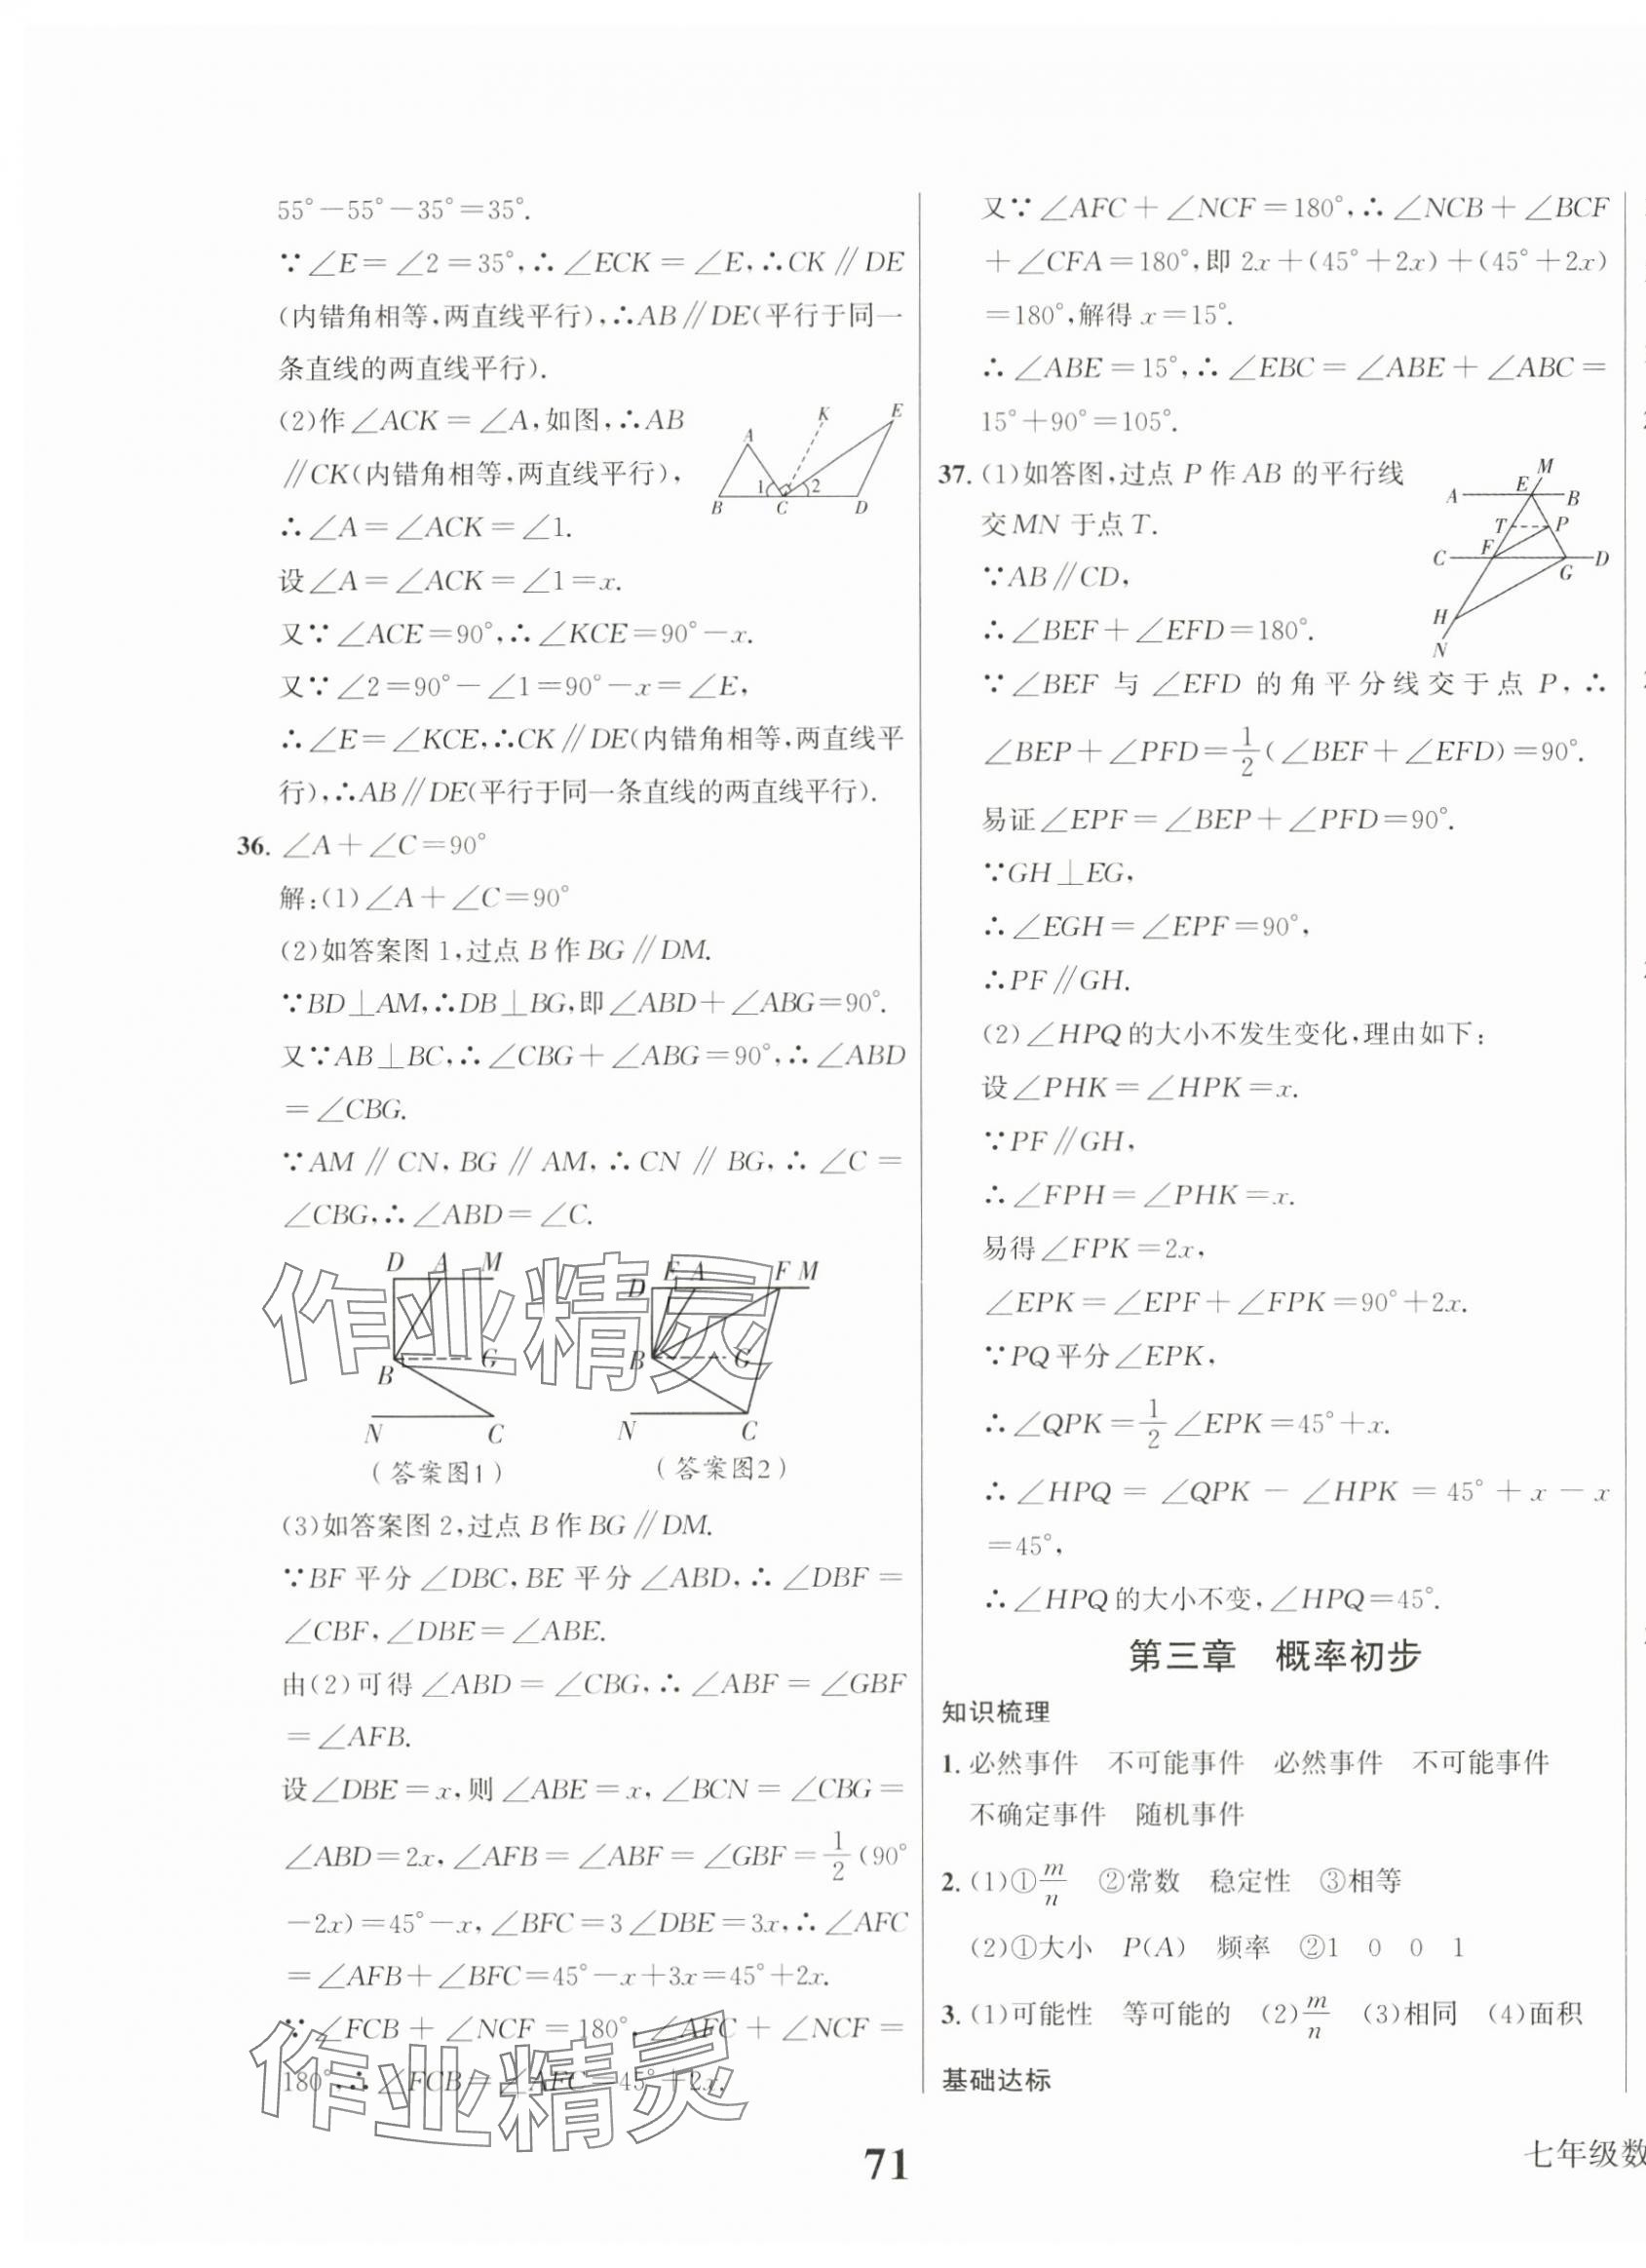 55°－55°－35°＝35°.
∵∠E＝∠2＝35°,∴∠ECK＝∠E,∴CK∥DE
(内错角相等,两直线平行),∴AB∥DE(平行于同一
条直线的两直线平行).
(2)作∠ACK＝∠A,如图,∴AB
∥CK(内错角相等,两直线平行),
∴∠A＝∠ACK＝∠1.
设∠A＝∠ACK＝∠1＝x.
又∵∠ACE＝90°,∴∠KCE＝90°－x.
又∵∠2＝90°－∠1＝90°－x＝∠E,
∴∠E＝∠KCE,∴CK∥DE(内错角相等,两直线平
行),∴AB∥DE(平行于同一条直线的两直线平行).
A K E
1 2
B C D
36. ∠A＋∠C＝90°
解:(1)∠A＋∠C＝90°
(2)如答案图1,过点B作BG∥DM.
∵BD⊥AM,∴DB⊥BG,即∠ABD＋∠ABG＝90°.
又∵AB⊥BC,∴∠CBG＋∠ABG＝90°,∴∠ABD
＝∠CBG.
∵AM∥CN,BG∥AM,∴CN∥BG,∴∠C＝
∠CBG,∴∠ABD＝∠C.
D A M
B G
N C
(答案图1)
D E A F M
B G
N C
(答案图2)
作业精灵
(3)如答案图2,过点B作BG∥DM.
∵BF平分∠DBC,BE平分∠ABD,∴∠DBF＝
∠CBF,∠DBE＝∠ABE.
由(2)可得∠ABD＝∠CBG,∴∠ABF＝∠GBF
＝∠AFB.
设∠DBE＝x,则∠ABE＝x,∠BCN＝∠CBG＝
∠ABD＝2x,∠AFB＝∠ABF＝∠GBF＝1/2(90°
－2x)＝45°－x,∠BFC＝3∠DBE＝3x,∴∠AFC
＝∠AFB＋∠BFC＝45°－x＋3x＝45°＋2x.
∵∠FCB＋∠NCF＝180°,∠AFC＋∠NCF＝
180°,∴∠FCB＝∠AFC＝45°＋2x.
作业精灵
又∵∠AFC＋∠NCF＝180°,∴∠NCB＋∠BCF
＋∠CFA＝180°,即2x＋(45°＋2x)＋(45°＋2x)
＝180°,解得x＝15°.
∴∠ABE＝15°,∴∠EBC＝∠ABE＋∠ABC＝
15°＋90°＝105°.
37. (1)如答图,过点P作AB的平行线
交MN于点T.
∵AB∥CD,
∴∠BEF＋∠EFD＝180°.
M
A E B
T P
C F G D
H
N
∵∠BEF与∠EFD的角平分线交于点P,∴
∠BEP＋∠PFD＝1/2(∠BEF＋∠EFD)＝90°.
易证∠EPF＝∠BEP＋∠PFD＝90°.
∵GH⊥EG,
∴∠EGH＝∠EPF＝90°,
∴PF∥GH.
(2)∠HPQ的大小不发生变化,理由如下:
设∠PHK＝∠HPK＝x.
∵PF∥GH,
∴∠FPH＝∠PHK＝x.
易得∠FPK＝2x,
∠EPK＝∠EPF＋∠FPK＝90°＋2x.
∵PQ平分∠EPK,
∴∠QPK＝1/2∠EPK＝45°＋x.
∴∠HPQ＝∠QPK－∠HPK＝45°＋x－x
＝45°,
∴∠HPQ的大小不变,∠HPQ＝45°.
第三章 概率初步
知识梳理
1. 必然事件 不可能事件 必然事件 不可能事件
不确定事件 随机事件
2. (1)①m/n ②常数 稳定性 ③相等
(2)①大小 P(A) 频率 ②1 0 0 1
3. (1)可能性 等可能的 (2)m/n (3)相同 (4)面积
基础达标
71
七年级数